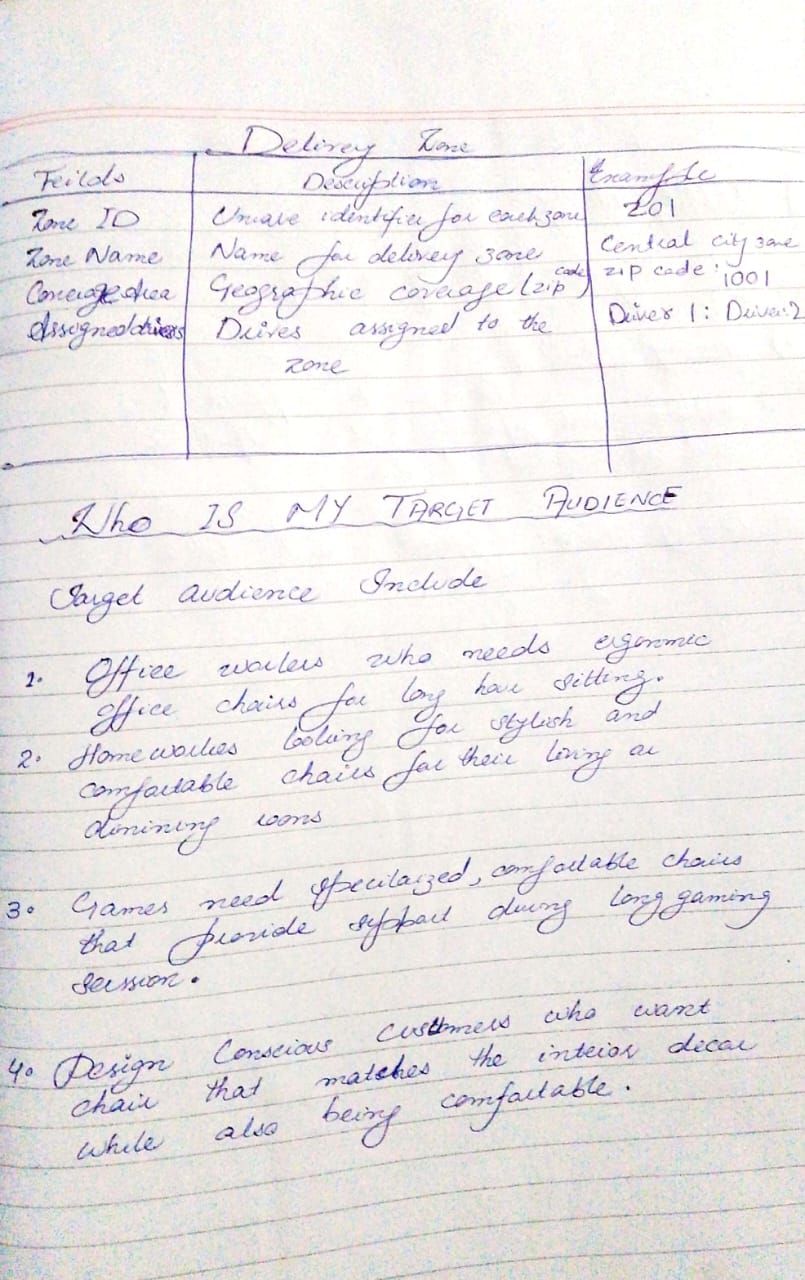 Delivrey Zone
Feilds Description Example
Zone ID Uniave identifier for each zone Z01
Zone Name Name for delivrey zone Central city zone
Coverage Area Geographic coverage (zip code) zip code: 1001
Assigned drivers Drives assigned to the Driver 1: Driver:2
zone
Who IS MY TARGET AUDIENCE
Target audience Include
1. Office workers who needs ergonmic
office chairs for long hour sitting.
2. Home workes looking for stylish and
comfortable chairs for their living or
dinining rooms
3. Games need specilaized, comfortable chairs
that provide support during long gaming
session.
4. Design Conscious customers who want
chair that matches the interior decor
while also being comfortable.